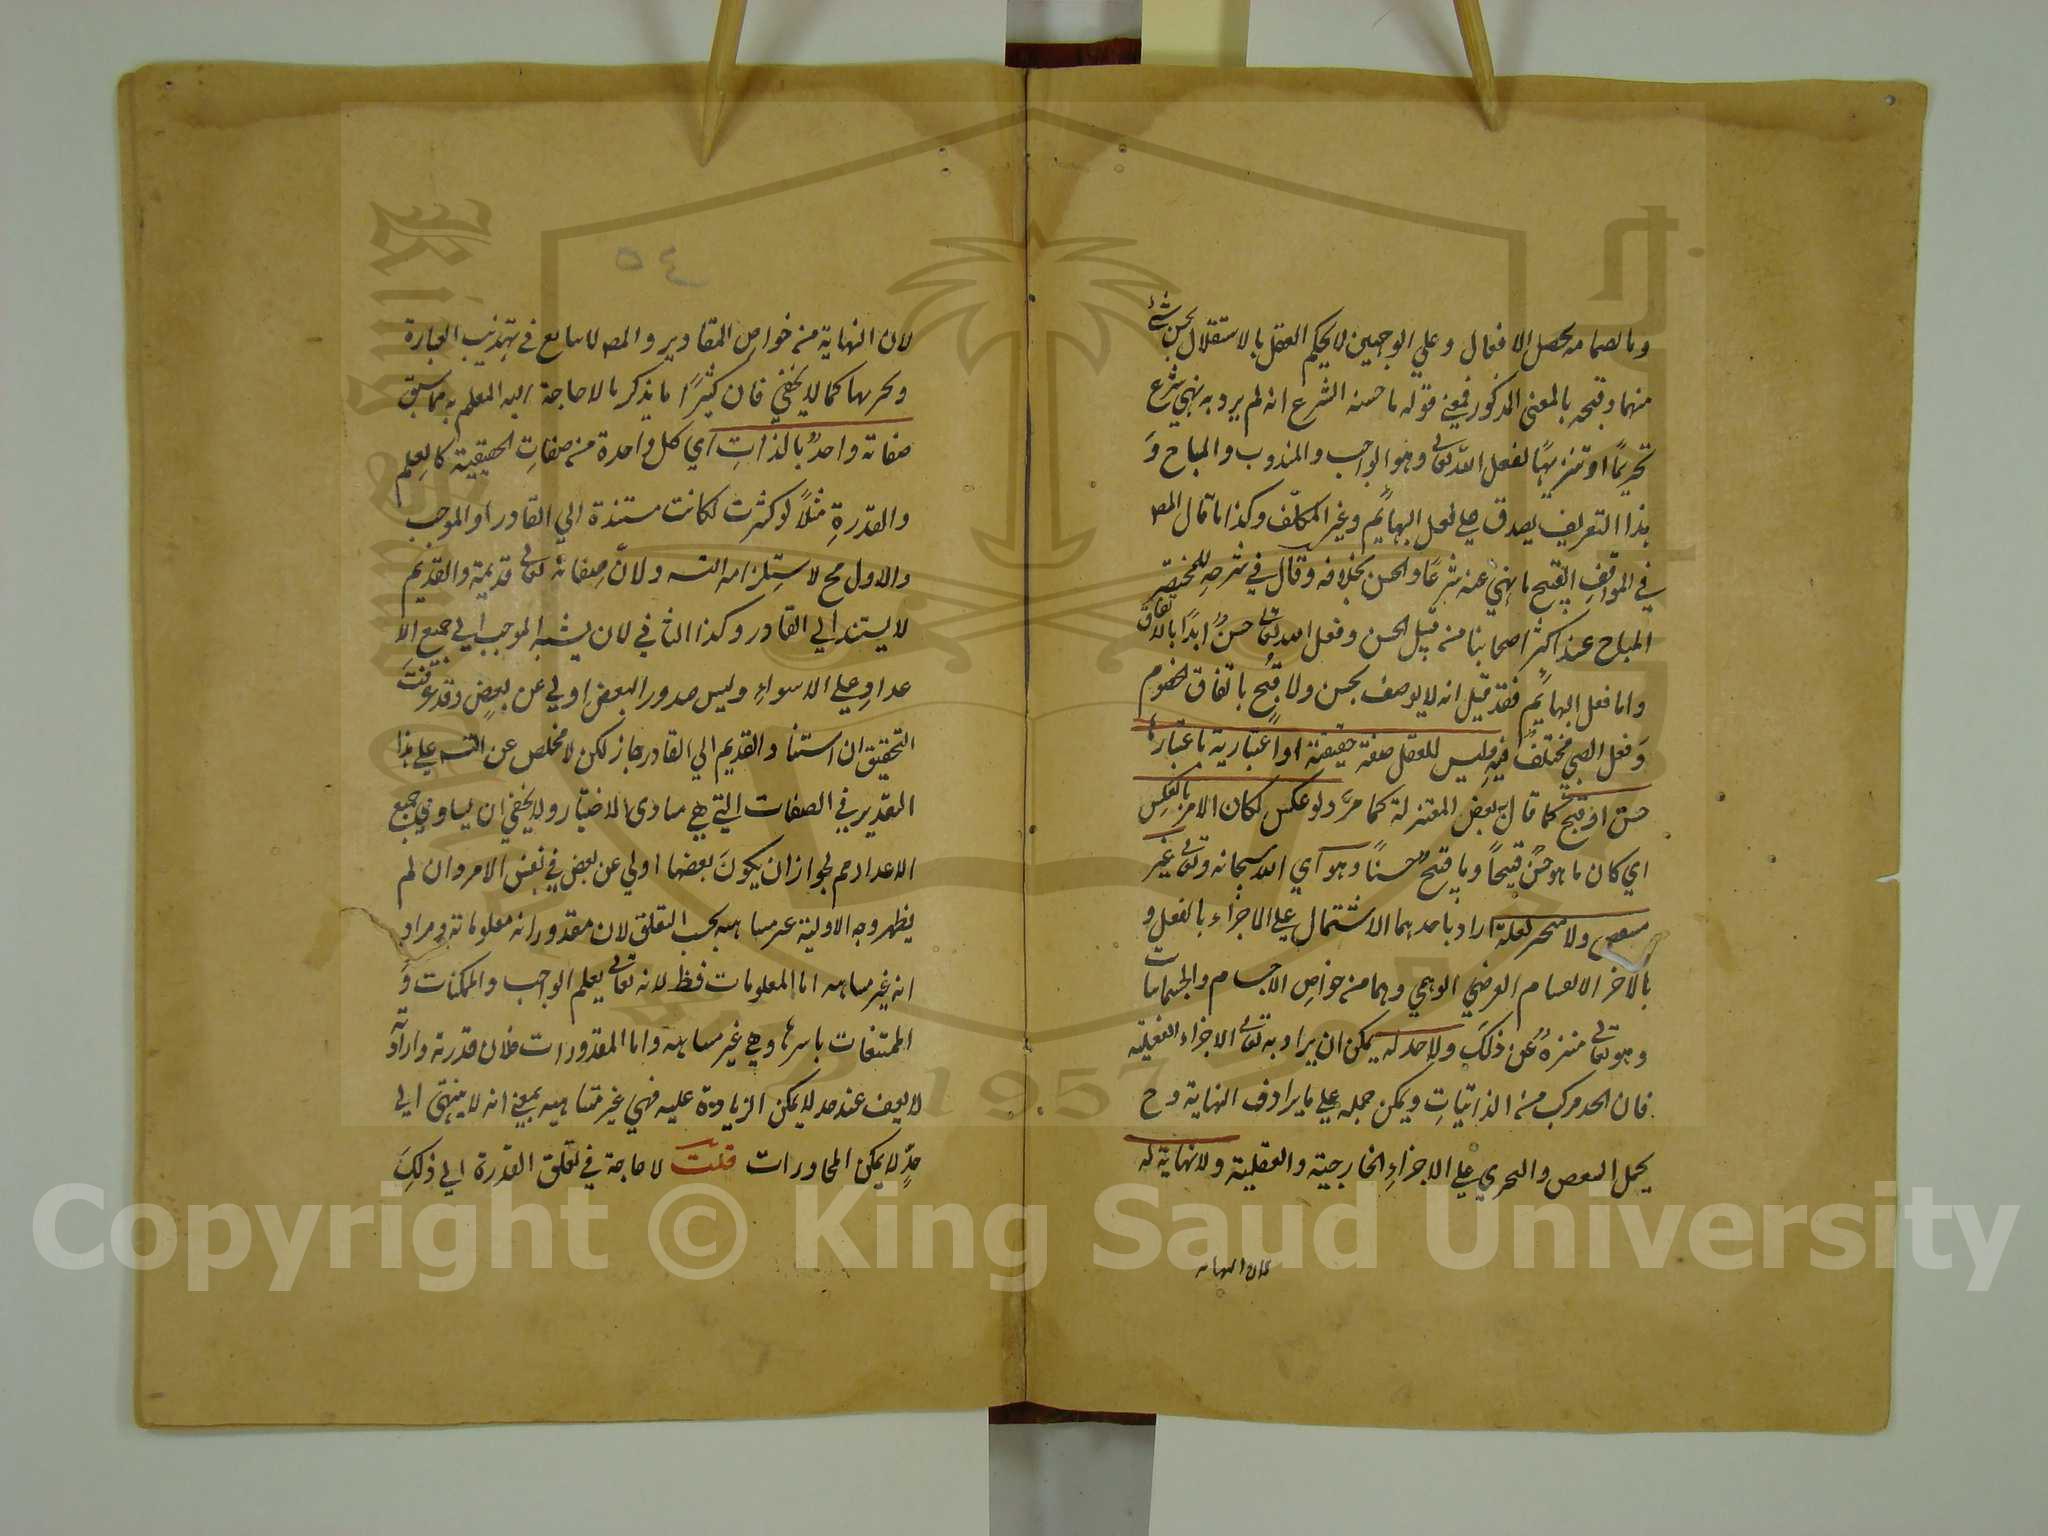 وبانضمامه يحصل الافعال وعلي الوجهين لا يحكم العقل بالاستقلال بحسن شئ
منهما وقبحه بالمعنى المذكور فمعنى قوله ما حسنه الشرع انه لم يرد به نهي شرع
تحريمًا او تنزيهًا لفعل الله تعالى وهو الواجب والمندوب والمباح وَ
هذا التعريف يصدق على فعل البهايم وغير المكلّف وكذا ما قال المص
في المواقف القبيح ما نهي عنه شرعًا والحسن بخلافه وقال في شرحه للمختصر
المباح عند اكثر اصحابنا من قبيل الحسن وفعل الله تعالى حسنٌ ابدًا بالاتفاق
واما فعل البهايم فقد قيل انه لا يوصف بحسن ولا قبح باتفاق الخصوم
وَفعل الصبي مختلفٌ فيه فليس للعقل صفة حقيقية او اعتبارية باعتبارها
حسن او قبح كما قال بعض المعتزلة كما مرّ ولو عكس لكان الامر بالعكس
اي كان ما هو حسنٌ قبيحًا وما قبح حسنًا وهو اي الله سبحانه وتعالى غير
متبعض ولا متجز لعله اراد باحدهما الاشتمال علي الاجزاء بالفعل و
بالاخر الانقسام الفرضي الوهمي وهما من خواص الاجسام والجسمانيات
وهو تعالى منزهٌ عن ذلكَ ولا حد له يمكن ان يراد به تعالى الاجزاء العقلية
فان الحد مركب من الذاتياتِ ويمكن حمله علي ما يرادف النهاية وح
يحمل التبعض والتجزي علي الاجزاءِ الخارجية والعقلية ولا نهاية له
لان النهاية
٤٥
لان النهاية من خواص المقادير والمص لا سابع في تهذيب العبارة
وتحريرها كما لا يخفي فان كثيرًا ما يذكر ما لا حاجة اليه للعلم به مما سبق
صفاته واحدٌ بالذاتِ اي كل واحدة من صفاتِ الحقيقية كالعلم
والقدرةِ مثلًا لو كثرت لكانت مستندة الي القادر او الموجب
والاول مح لاستلزامه التسه ولانّ صفاته تعالى قديمة والقديم
لا يستند الي القادر وكذا الثاني لان نسبة الموجب الي جميع الا
عداد علي الاسواءِ وليس صدور البعض اولي عن بعضٍ وقد عرفتَ
التحقيق ان استناد القديم الي القادر جاز لكن لا مخلص عن التسه علي هذا
التقدير في الصفات التي هي مبادى الاختيار ولا يخفي ان تساوي جميع
الاعداد مم لجواز ان يكونَ بعضها اولي عن بعض في نفس الامر وان لم
يظهر وجه الاولية غير متناهيه بحسب التعلق لان مقدوراته معلوماته ومراد
اته غير متناهيه اما المعلومات فظ لانه تعالى يعلم الواجب والممكنات وَ
الممتنعات باسرها وهي غير متناهيه واما المقدورات فلان قدرته وارادته
لا يقف عند حد لا يمكن الزيادة عليه فهي غير متناهيه بمعنى انه لا ينتهي الي
حدٍّ لا يمكن المحاورات قلت لا حاجة في تعلق القدرة الي ذلكَ
Copyright © King Saud University
1957